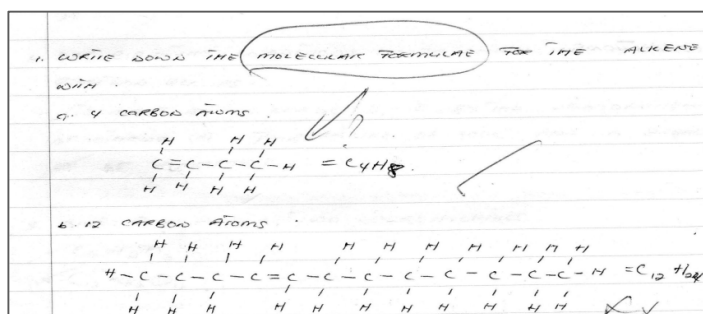 1. WRITE DOWN THE MOLECULAR FORMULAE FOR THE ALKENE
WITH.
a. 4 CARBON ATOMS.
H H H
C=C-C-C-H =C4H8.
H H H H
b. 12 CARBON ATOMS.
H H H H H H H H H H H
H-C-C-C-C=C-C-C-C-C-C-C-C-H =C12H24
H H H H H H H H H H H